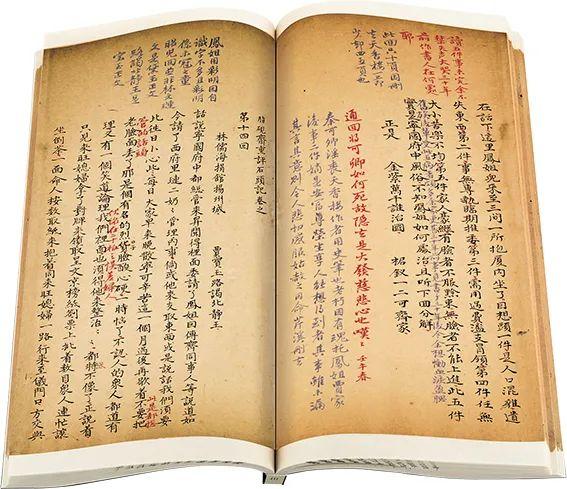 讀五件事未完余不
禁失聲大哭三十年
前作書人在何處
耶
此回只十頁因刪
去天香樓一節
少却四五頁也
在話下這里鳳姐兒來至三間一所抱厦内坐了因想頭一件是人口混雜遺
失東西第二件事無專執臨期推委第三件需用過費濫支冒領第四件任無
大小苦樂不均第五件家人豪縱有臉者不服鈐束無臉者不能上進此五件
實是寧國府中風俗不知鳳姐如何處治且聽下面分解
正是 金紫萬千誰治國 裙釵一二可齊家
通回將可卿如何死故隱去是大發慈悲心也嘆嘆 壬午春
秦可卿淫喪天香樓作者用史筆也老朽因有魂托鳳姐賈家
後事二件嫡是安富尊榮坐享人能想得到處其事雖未漏
其言其意則令人悲切感服姑赦之因命芹溪刪去
鳳姐用彩明因自
識字不多且彩明
係未冠之童
昭兒回並非林文璉
文是黛玉正文
路謁北静王是
寶玉正文
脂硯齋重評石頭記卷之
第十四回
林儒海捐館揚州城
賈寶玉路謁北静王
話說寧國府中都総管來昇聞得裡面委請了鳳姐因傳齊同事人等說道如
今請了西府里璉二奶奶管理内事倘或他來支取東西或是說話我們須要
比往日小心些每日大家早來晚散寧可辛苦這一個月過後再歇着不要把
此是都總
管的話頭
老臉面丟了那是個有名的烈貨臉酸心硬一時惱了不認人的衆人都道有
理又有一個笑道論理我們裡面也須得他來整治整治都特不像了正說着
只見來旺媳婦拿了對牌來領取呈文京榜紙劄票上批着數目衆人連忙讓
坐倒茶一面命人按數取紙來抱着同來旺媳婦一路行來至儀門口方交與